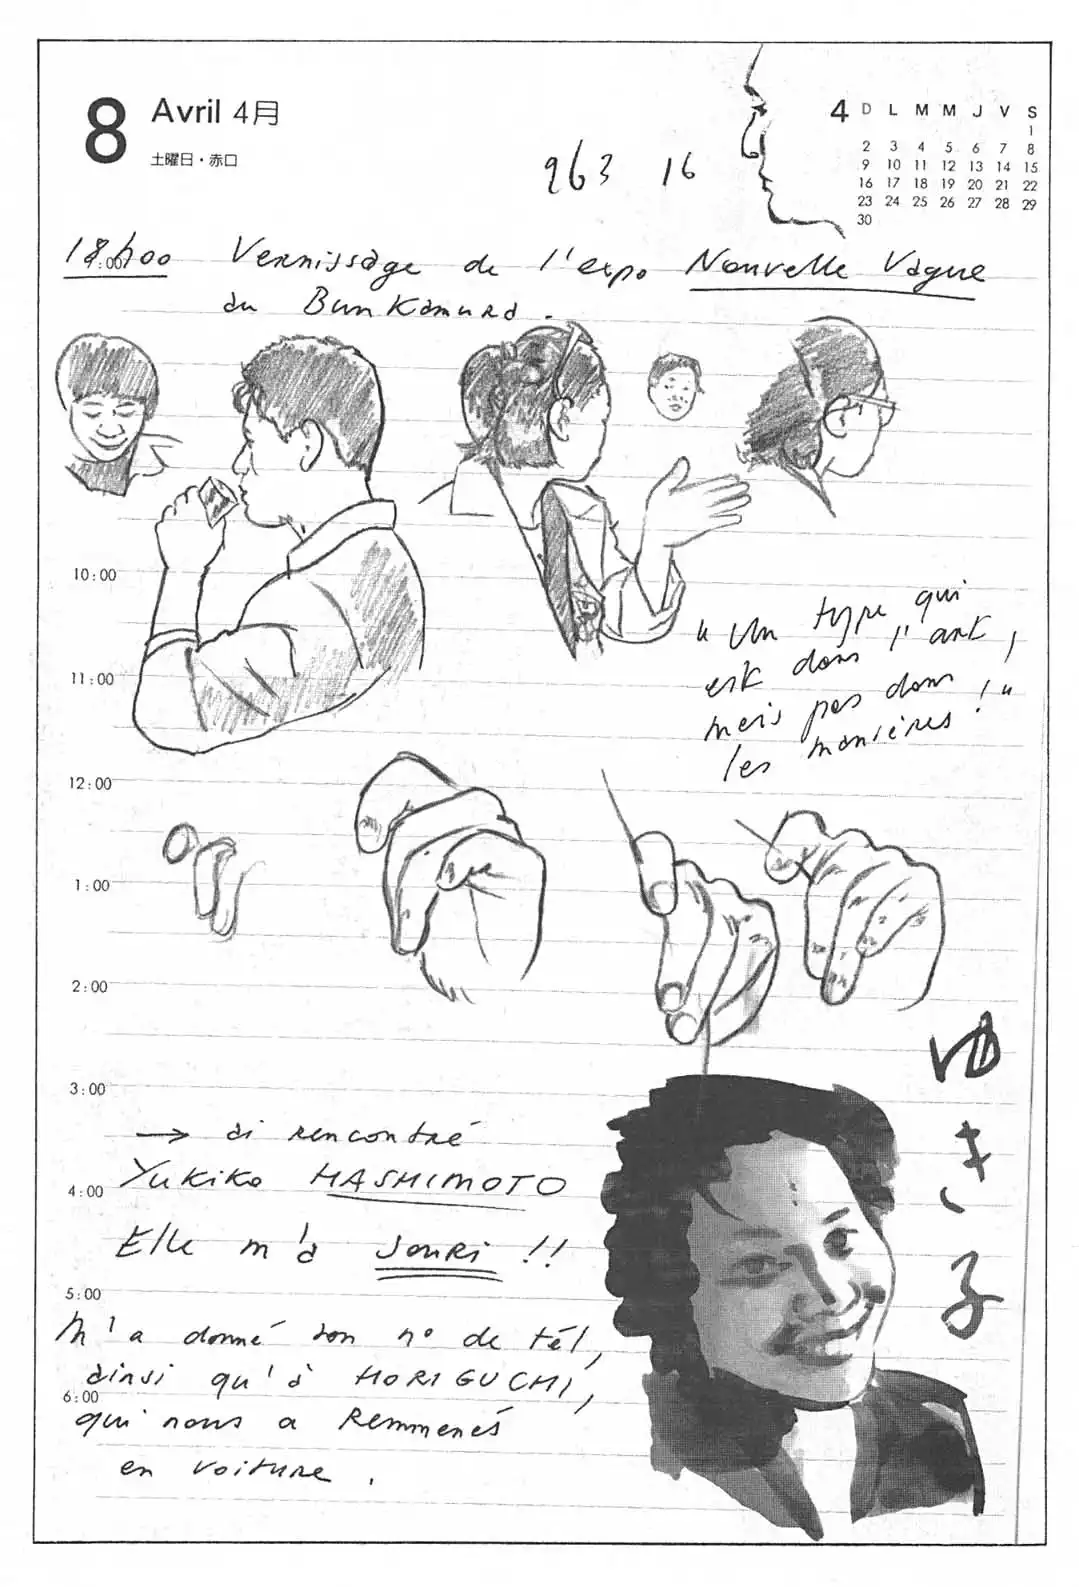 8 Avril 4月
土曜日・赤口
963 16
4 D L M M J V S
1
2 3 4 5 6 7 8
9 10 11 12 13 14 15
16 17 18 19 20 21 22
23 24 25 26 27 28 29
30
18h00 Vernissage de l'expo Nouvelle Vague
au Bunkamura.
10:00
"Un type qui
est dans l'art,
mais pas dans
les manières !"
11:00
12:00
1:00
2:00
ゆき子
3:00
→ ai rencontré
4:00
Yukiko HASHIMOTO
Elle m'a souri !!
5:00
M'a donné son n° de tél,
ainsi qu'à HORIGUCHI,
6:00
qui nous a remmenés
en voiture.